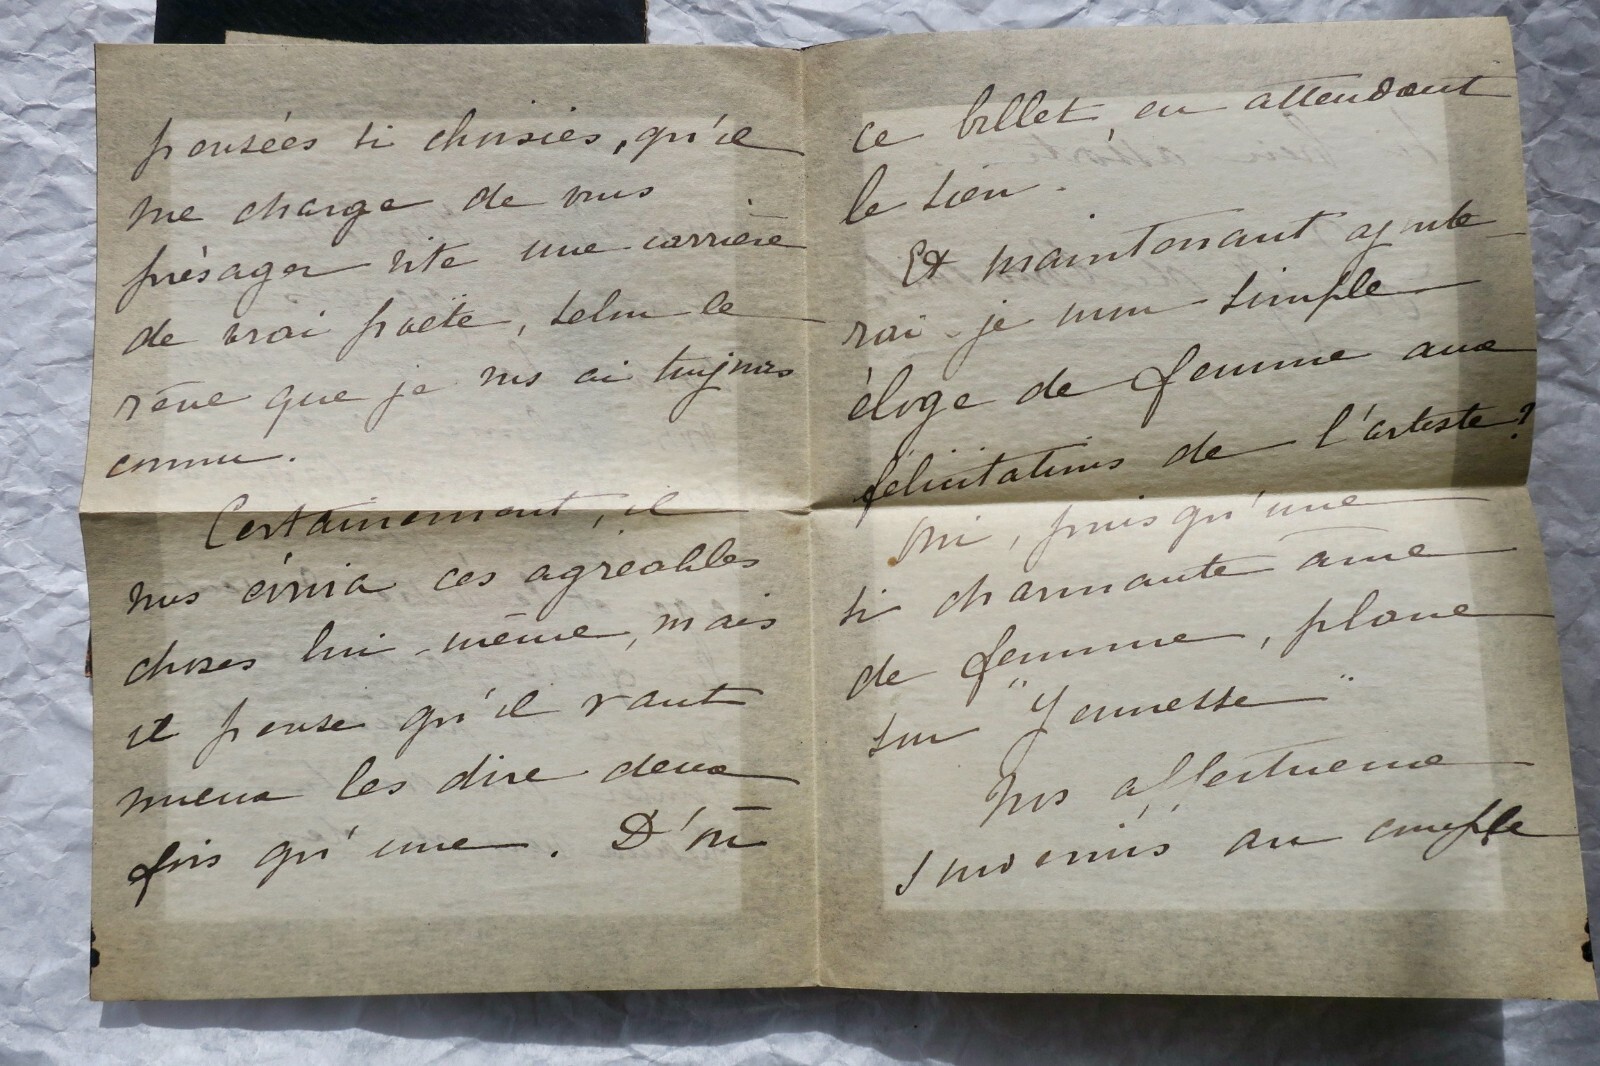 pensées si choisies, qu'il
me charge de vous
présager vite une carrière
de vrai poëte, selon le
rêve que je vous ai toujours
connu.
Certainement, il
vous écrira ces agréables
choses lui-même, mais
il pense qu'il vaut
mieux les dire deux
fois qu'une. D'où
ce billet, en attendant
le sien.
Et maintenant ajoute
rai-je mon simple
éloge de femme aux
félicitations de l'artiste?
Oui, puisqu'une
si charmante âme
de femme, plane
sur "Jeunesse"
Nos affectueux
souvenirs au couple